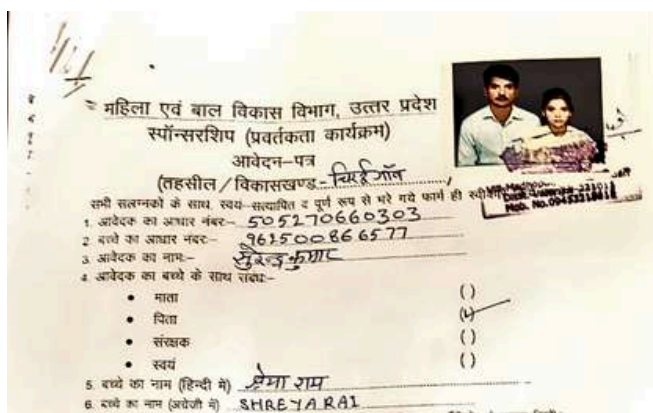 1/1
महिला एवं बाल विकास विभाग, उत्तर प्रदेश
स्पॉन्सरशिप (प्रवर्तकता कार्यक्रम)
आवेदन-पत्र
(तहसील / विकासखण्ड- चिरईगाँव
सभी सलग्नको के साथ, स्वय-सत्यापित द पुर्ण रूप से भरे गये फार्म ही स्वी
Mob. No.09453218
1. आवेदक का आधार नंबर:- 505270660303
2 बच्चे का आधार नंबर:- 962500866577
3 आवेदक का नाम:- सुरेन्द्र कुमार
4. आवेदक का बच्चे के साथ संबंध:-
• माता ( )
• पिता (✓)
• संरक्षक ( )
• स्वयं ( )
5. बच्चे का नाम (हिन्दी में) राय
6. बच्चे का नाम (अंग्रेजी में) SHREYA RAI